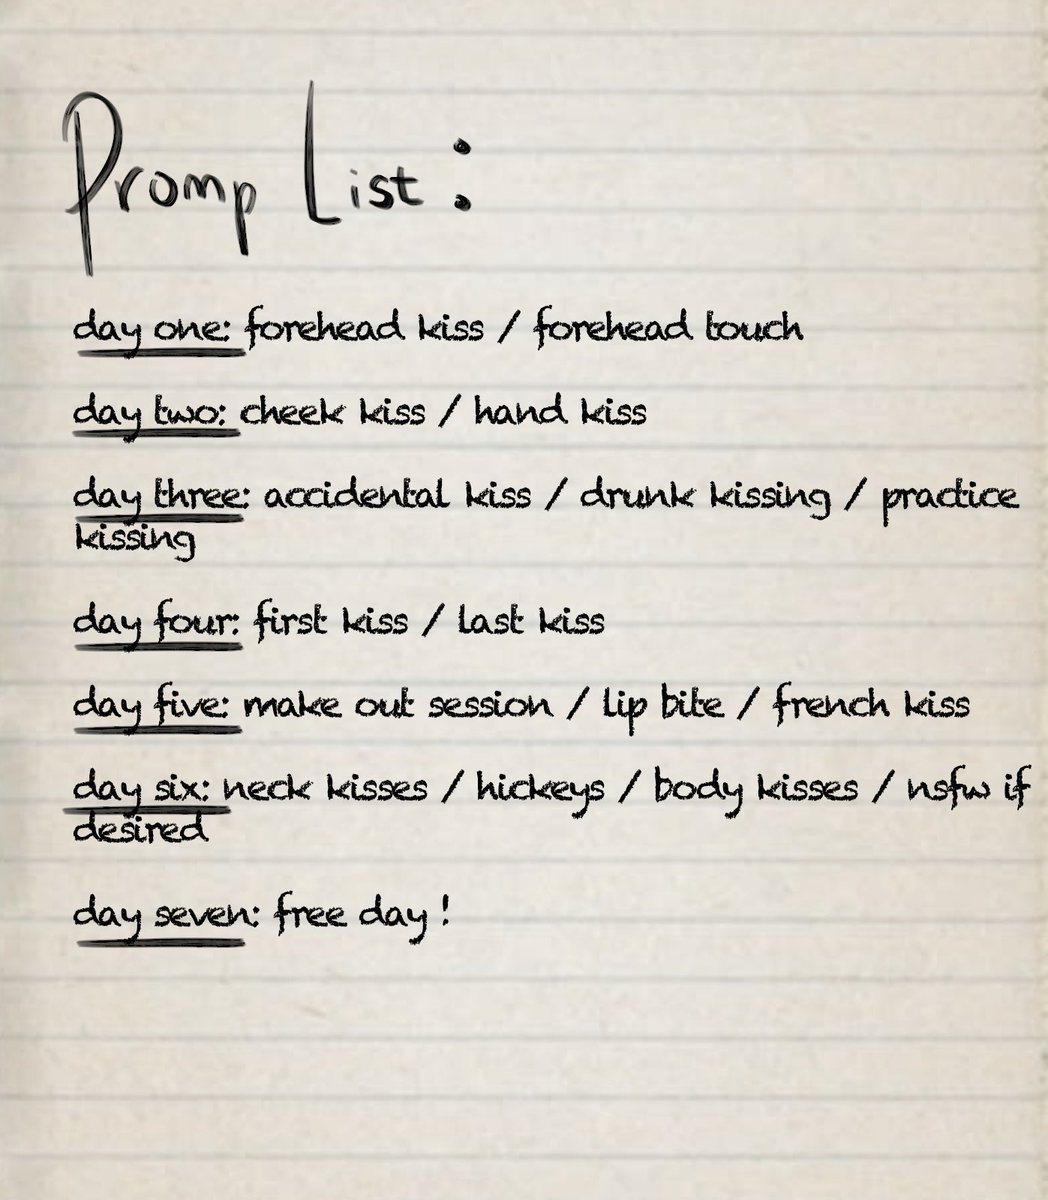 Promp List:
day one: forehead kiss / forehead touch
day two: cheek kiss / hand kiss
day three: accidental kiss / drunk kissing / practice
kissing
day four: first kiss / last kiss
day five: make out session / lip bite / french kiss
day six: neck kisses / hickeys / body kisses / nsfw if
desired
day seven: free day !